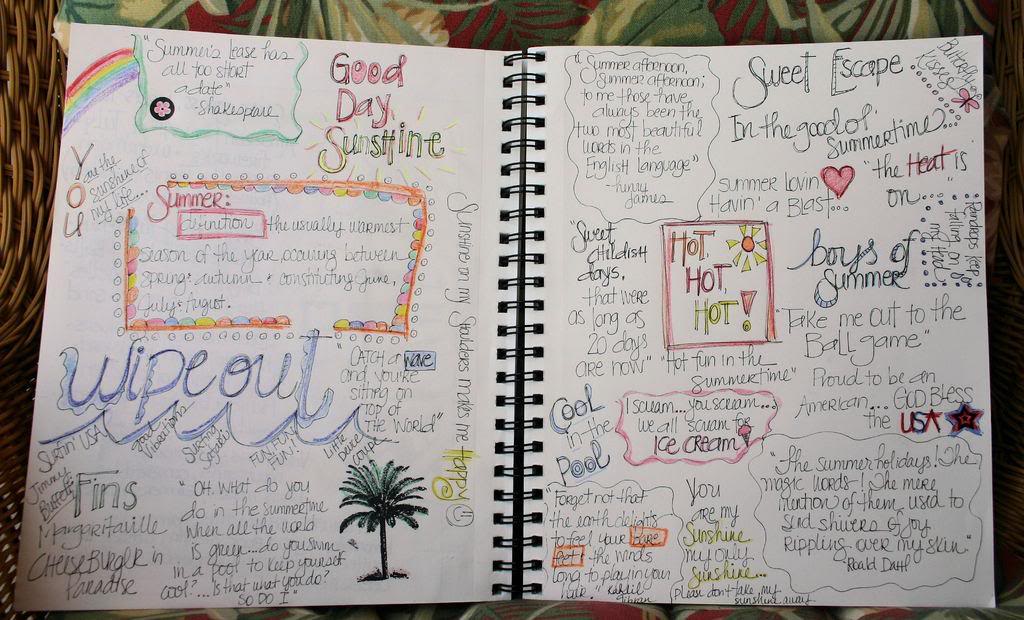 "Summer's lease has
all too short
a date"
-Shakespeare
Good
Day,
Sunshine
YOU
are the
sunshine of
my life...
Summer:
definition the usually warmest
season of the year, occuring between
spring & autumn & constituting June,
July & August.
Sunshine on my Shoulders makes me Happy
wipeout
"CATCH a wave
and you're
sitting on
top of
the World"
Surfin USA
good
Vibrations
Surfing
Safari
FUN! FUN!
FUN!
Little
Deuce
Coupe
Jimmy
Buffett
Fins
Margaritaville
CHEESEBURGER in
Paradise
"Oh, what do you
do in the summertime
when all the world
is green...do you swim
in a pool to keep yourself
cool?...Is that what you do?
SO DO I"
"Summer afternoon,
summer afternoon;
to me those have
always been the
two most beautiful
words in the
English language"
-henry
james
Sweet Escape
Butterfly
Kisses
In the good ol'
Summertime...
"the Heat is
on...
Summer Lovin'
Havin' a Blast...
Raindrops keep
falling on
my head
"Sweet
childish
days,
that were
as long as
20 days
are now"
HOT,
HOT,
HOT!
boys of
Summer
"Take me out to the
Ball game"
"Hot fun in the
summertime"
Proud to be an
American... GOD BLESS
the USA
Cool
in the
Pool
I scream...you scream...
we all scream for
ICE CREAM
"Forget not that
the earth delights
to feel your bare
feet & the winds
long to play in your
hair." -kahlil
gibran
You
are my
Sunshine
my only
Sunshine...
please don't take my
sunshine away
"The summer holidays! The
magic words! The mere
mention of them, used to
send shivers of joy
rippling over my skin."
-Roald Dahl